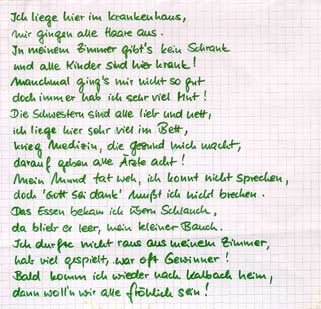 Ich liege hier im Krankenhaus,
mir gingen alle Haare aus.
In meinem Zimmer gibt's kein Schrank
und alle Kinder sind hier krank!
Manchmal ging's mir nicht so gut
doch immer hab ich sehr viel Mut!
Die Schwestern sind alle lieb und nett,
ich liege hier sehr viel im Bett,
krieg Medizin, die gesund mich macht,
darauf geben alle Ärzte acht!
Mein Mund tat weh, ich konnt nicht sprechen,
doch 'Gott sei dank' mußt ich nicht brechen.
Das Essen bekam ich übern Schlauch,
da blieb er leer, mein kleiner Bauch.
Ich durfte nicht raus aus meinem Zimmer,
hab viel gespielt, war oft Gewinner!
Bald komm ich wieder nach Kalbach heim,
dann woll'n wir alle fröhlich sein!